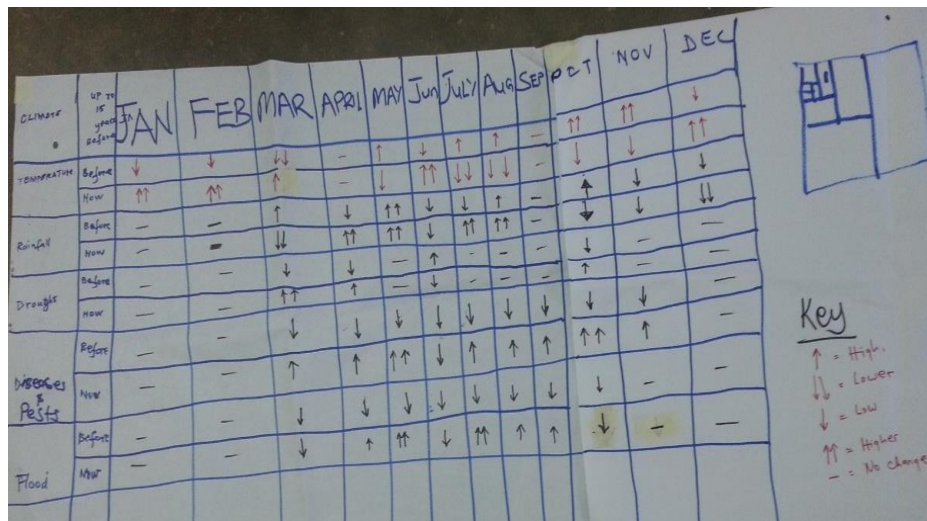 CLIMATE UP TO 15 years Before JAN FEB MAR APRIL MAY Jun JULY AUG SEP OCT NOV DEC
TEMPERATURE Before ↓ ↓ ↓↓ – ↑ ↓ ↑ ↑ – ↑↑ ↑↑ ↓
Now ↑↑ ↑↑ ↑ – ↓ ↑↑ ↓↓ ↓↓ – ↓ ↓ ↑↑
Rainfall Before – – ↑ ↓ ↑↑ ↓ ↓ ↑ – ↑ ↓ ↓
Now – – ↓↓ ↑↑ ↑↑ ↓ ↑↑ ↑↑ – ↓ ↓ ↓↓
Drought Before – – ↓ ↓ – ↑ – – – ↓ – –
Now – – ↑↑ ↑ – ↓ – – – ↑ – –
Diseases & Pests Before – – ↓ ↓ ↓ ↓ ↓ ↓ ↓ ↓ ↓ –
Now – – ↑ ↑ ↑↑ ↓ ↑ ↑ ↑ ↑↑ ↑ –
Flood Before – – ↓ ↓ ↓ ↓ ↓ ↓ ↓ ↓ – –
Now – – ↓ ↑ ↑↑ ↓ ↑↑ ↑ ↑ ↓ – –
Key
↑ = High.
↓↓ = Lower
↓ = Low
↑↑ = Higher
– = No change